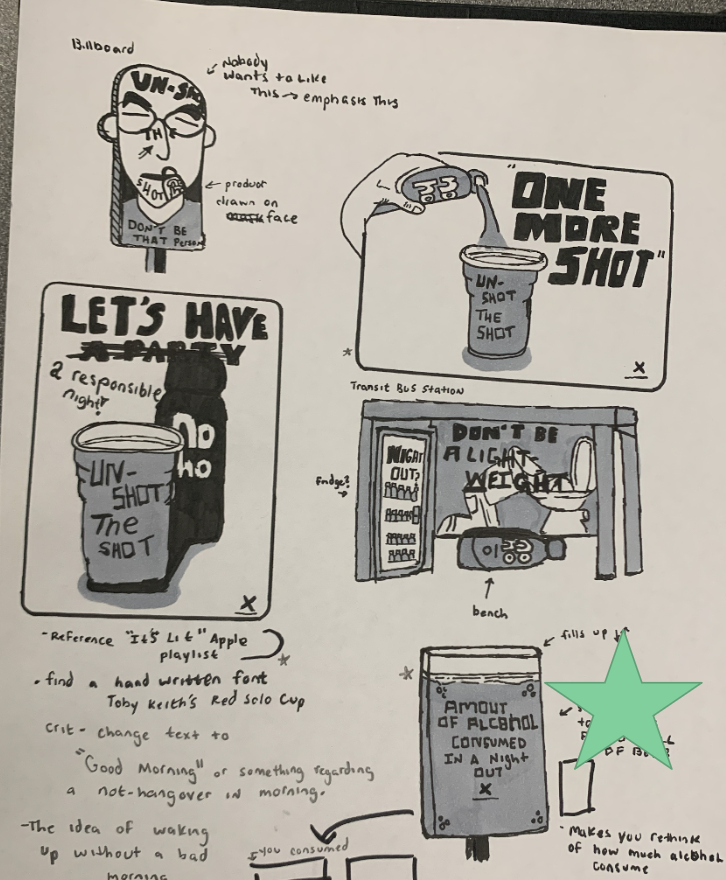 Billboard
Nobody
Wants to Like
This → emphasis This
UN-SH
THE
SHOT
DON'T BE
THAT Person
drawn on
face
"ONE
MORE
SHOT"
UN-
SHOT
THE
SHOT
X
LET'S HAVE
A PARTY
a responsible
night!
No
Ho
UN-
SHOT
The
SHOT
X
Transit BUS Station
DON'T BE
A LIGHT-
WEIGHT
NIGHT
OUT?
bench
-Reference "It's Lit" Apple
playlist
• find a hand written font
Toby Keith's Red Solo Cup
crit - change text to
"Good Morning" or something regarding
a not-hangover in morning.
-The idea of waking
up without a bad
morning
fills up
AMOUT
OF ALCOHOL
CONSUMED
IN A Night
OUT
X
you consumed
- Makes you rethink
of how much alcohol
consume